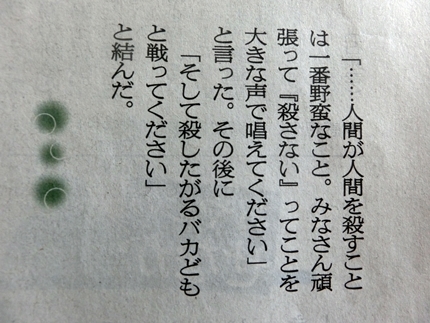 「……人間が人間を殺すこと
は一番野蛮なこと。みなさん頑
張って『殺さない』ってことを
大きな声で唱えてください」
と言った。その後に
「そして殺したがるバカども
と戦ってください」
と結んだ。